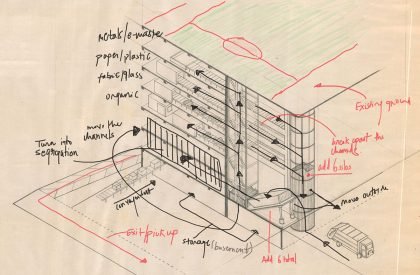 metals/e-waste
paper/plastic
fabric/glass
organic
move the
channels
Turn into
segregation
Existing ground
break apart the
channels
add 6 silos
move outside
conveyor belt
Exit/pick up
storage (basement)
Add 6 total